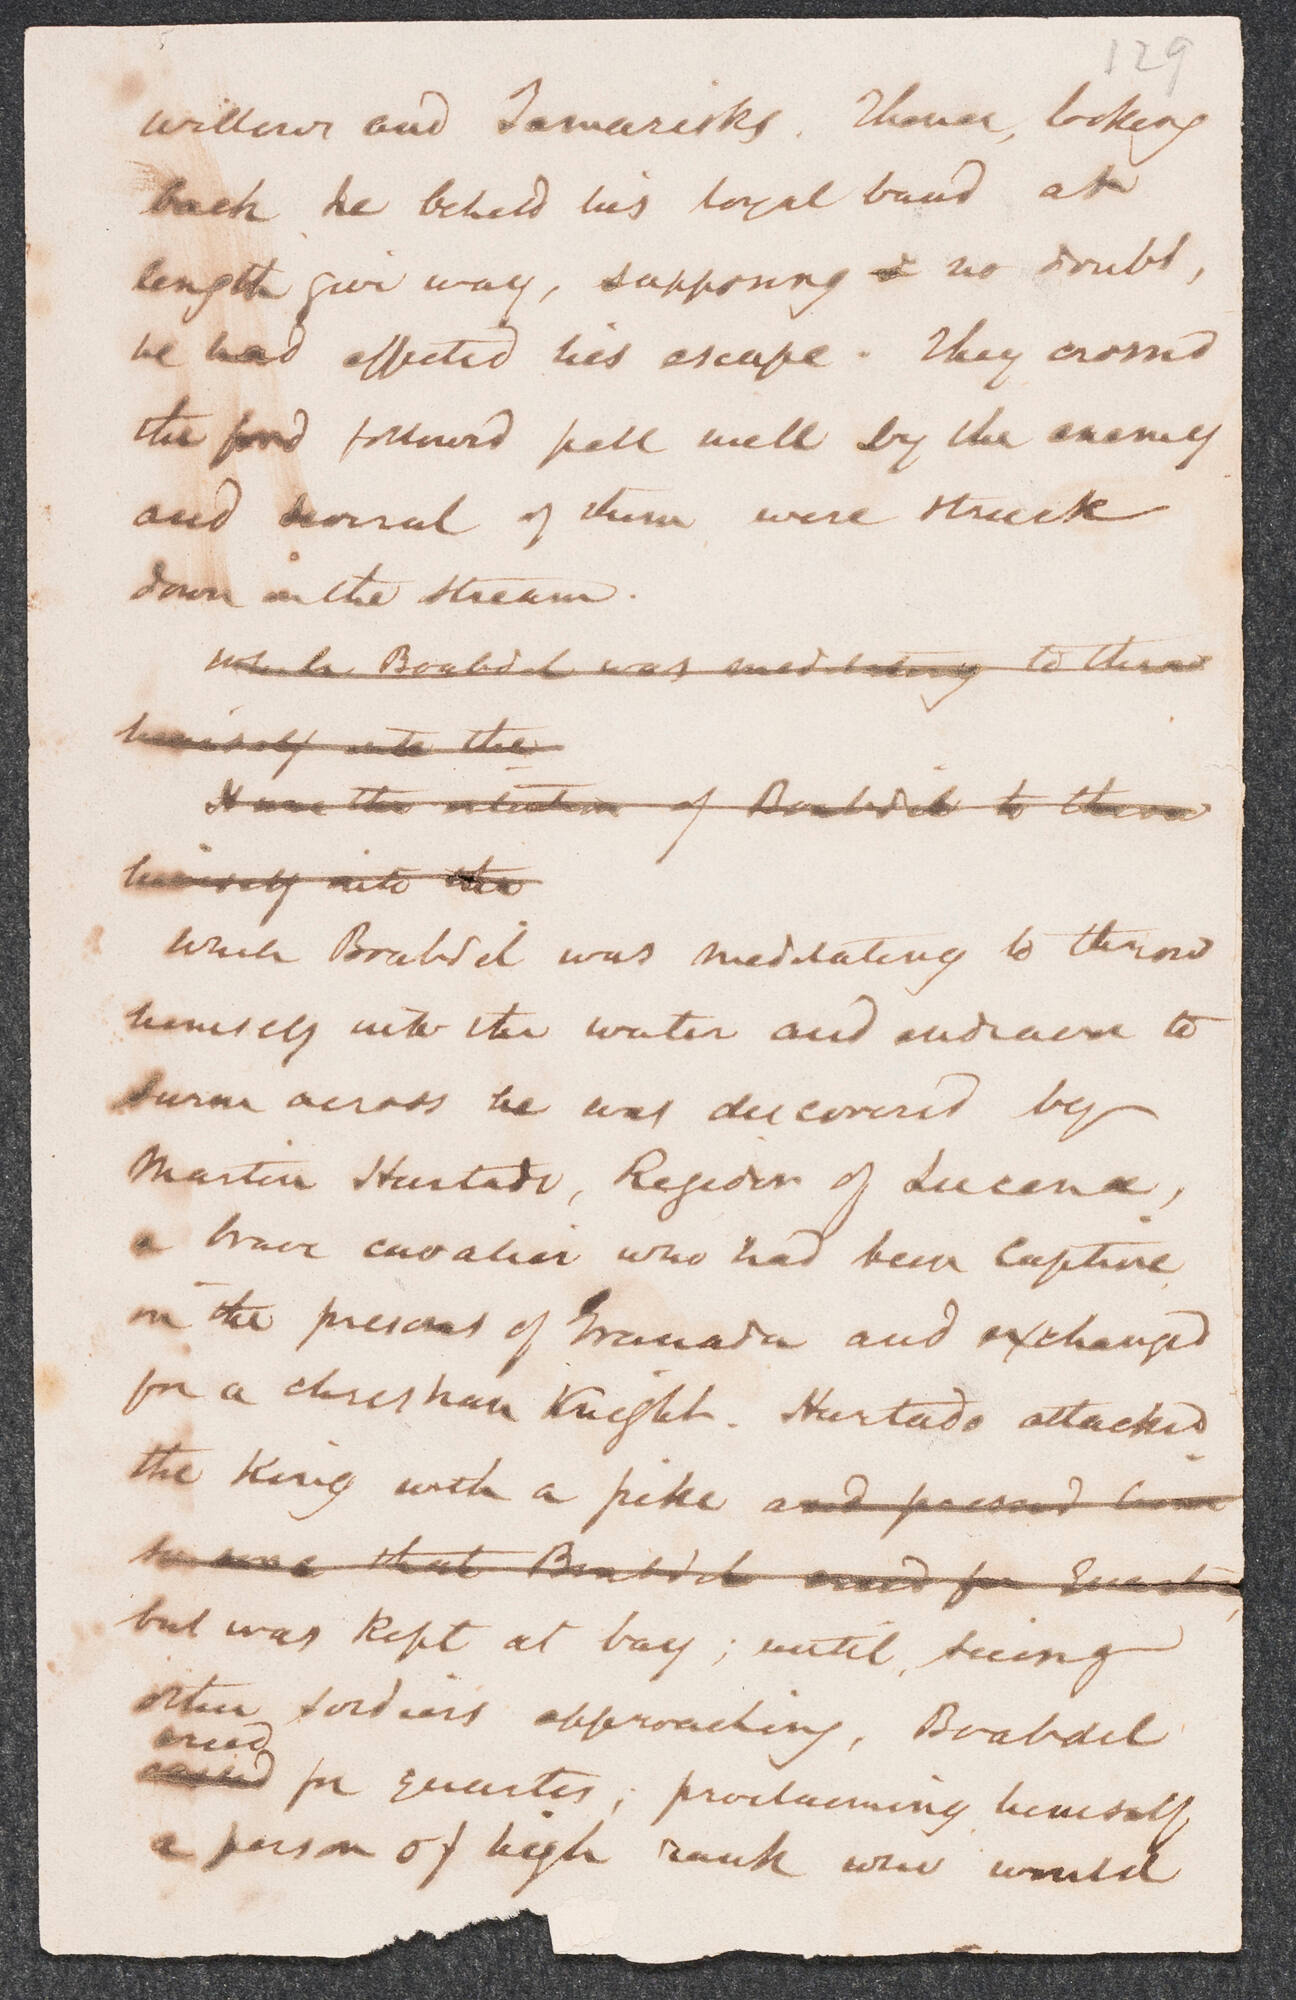 129
willows and Tamarisks. Thence, looking
back he beheld his loyal band at
length give way, supposing no doubt,
he had effected his escape. They crossed
the ford followed pell mell by the enemy
and several of them were struck
down in the stream.
While Boabdil was meditating to throw
himself into the
It was the intention of Boabdil to throw
himself into the
While Boabdil was meditating to throw
himself into the water and endeavor to
swim across he was discovered by
Martin Hurtado, Regidor of Lucena,
a brave cavalier who had been captive
in the prisons of Granada and exchanged
for a christian Knight. Hurtado attacked
the King with a pike and pressed him
so sore that Boabdil cried for Quarter,
but was kept at bay; until, seeing
other soldiers approaching, Boabdil
cried
called for quarter; proclaiming himself
a person of high rank who would